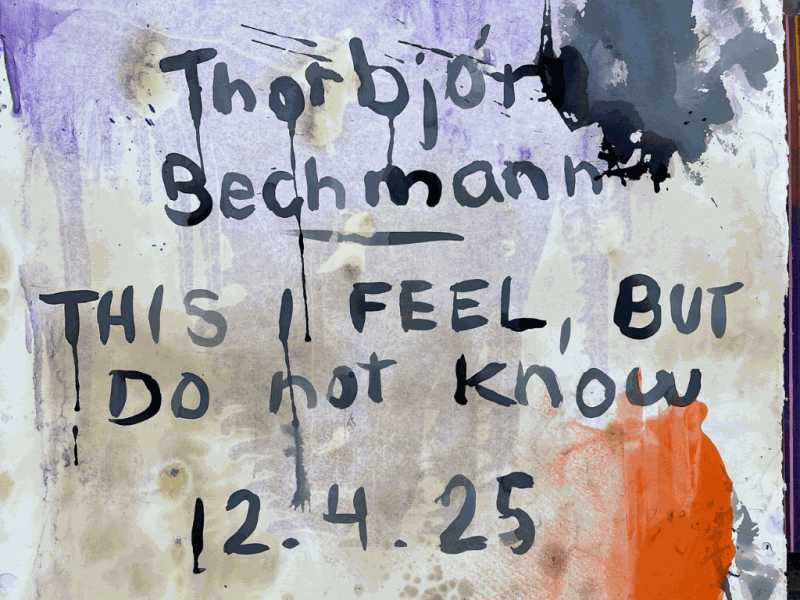 Thorbjór
Bechmann
THIS I FEEL, BUT
DO not know
12.4.25